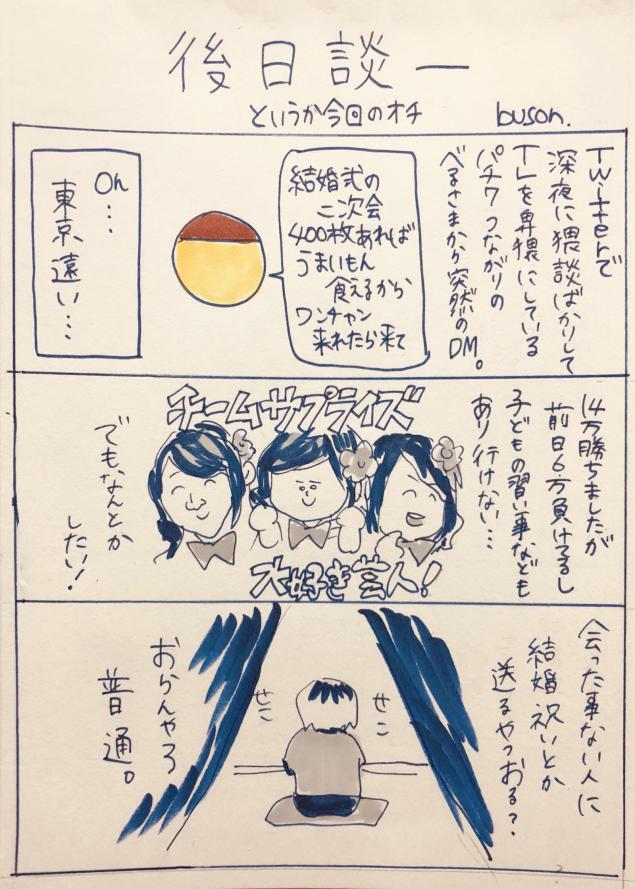 後日談一
というか今回のオチ
buson.
Twitterで
深夜に猥談ばかりして
TLを卑猥にしている
パチ7つながりの
べるさまから突然のDM。
結婚式の
二次会
400枚あれば
うまいもん
食えるから
ワンチャン
来れたら来て
Oh…
東京遠い…
14万勝ちましたが
前日6万負けてるし
子どもの習い事なども
あり行けない…
チームサプライズ
大好き芸人!
でもなんとか
したい!
会った事ない人に
結婚祝いとか
送るやつおる?
せこ
せこ
おらんやろ
普通。